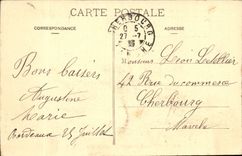 CARTE POSTALE
CORRESPONDANCE
ADRESSE
CHERBOURG
6 5
27 -7
Bons baisers
Augustine
Marie
Bordeaux 25 Juillet
Monsieur Léon Letellier
42 Rue du commerce
Cherbourg
Manche